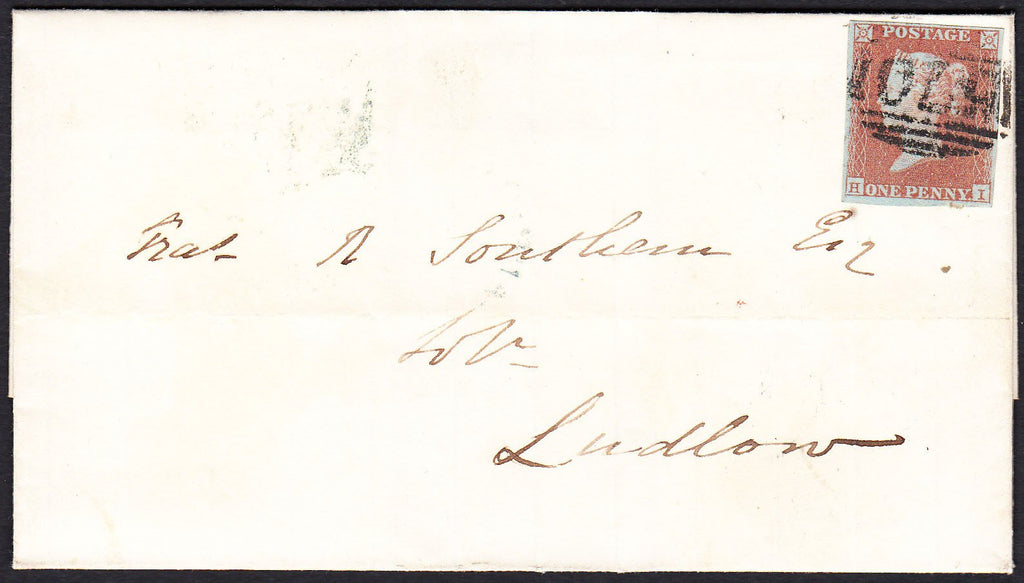 POSTAGE
H ONE PENNY. I
Fras R Southern Esq.
Solr
Ludlow